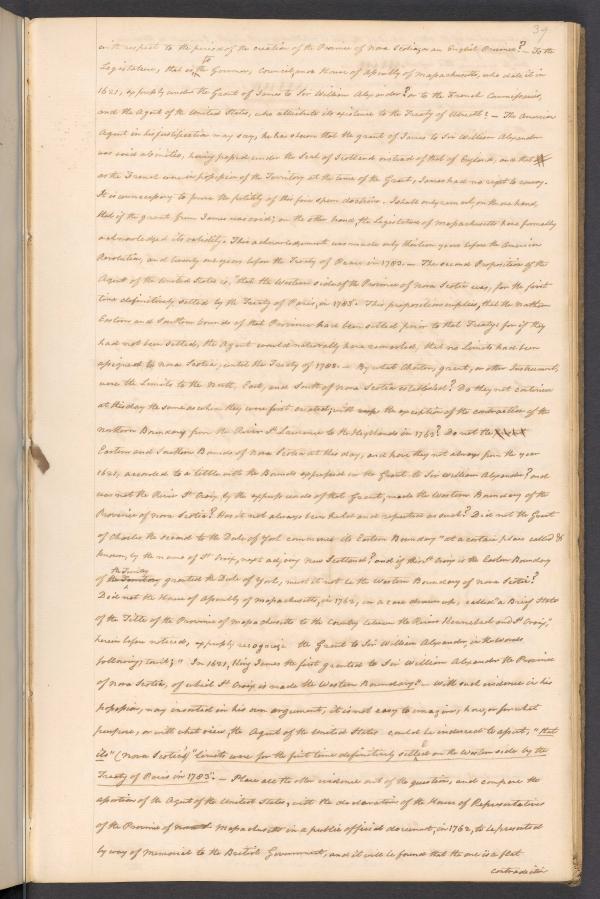 39
with respect to the period of the creation of the Province of Nova Scotia, as an English Province? — To the
Legislature, that is to the Governor, Council, and House of Assembly of Massachusetts, who date it in
1621, expressly under the Grant of James to Sir William Alexander? or to the French Commissaries,
and the Agent of the United States, who attribute its existence to the Treaty of Utrecht? — The American
Agent in his justification may say, he has shewn that the grant of James to Sir William Alexander
was void ab initio, having passed under the Seal of Scotland instead of that of England, and that
as the French were in possession of the Territory at the time of the Grant, James had no right to convey.
It is unnecessary to prove the futility of this fine spun doctrine. I shall only remark, on the one hand,
that if the grant from James was void; on the other hand, the Legislature of Massachusetts have formally
acknowledged its validity. This acknowledgement was made only thirteen years before the American
Revolution, and twenty one years before the Treaty of Peace in 1783. — The second Proposition of the
Agent of the United States is, "that the Western side of the Province of Nova Scotia was, for the first
time definitively settled by the Treaty of Paris, in 1783". This proposition implies, that the Northern
Eastern and Southern bounds of that Province had been settled prior to that Treaty; for if they
had not been settled, the Agent would naturally have remarked, that no Limits had been
assigned to Nova Scotia, until the Treaty of 1783. — By what Charter, grant, or other Instrument,
were the Limits to the North, East, and South of Nova Scotia established? Do they not continue
at this day the same as when they were first created, with the exception of the contraction of the
northern Boundary from the River St Lawrence to the Highlands in 1763? Do not the
Eastern and Southern Bounds of Nova Scotia at this day, and have they not always from the year
1621, accorded to a tittle with the Bounds expressed in the Grant to Sir William Alexander? and
was not the River St Croix, by the express words of that Grant, made the Western Boundary of the
Province of Nova Scotia? Has it not always been held and reputed as such? Did not the Grant
of Charles the second to the Duke of York commence its Eastern Boundary "at a certain place called &
known, by the name of St Croix, next adjoing New Scotland? and if this St Croix is the Eastern Boundary
the Territory
of granted the Duke of York, must it not be the Western Boundary of Nova Scotia?
Did not the House of Assembly of Massachusetts, in 1762, in a case drawn up, called "a Brief State
of the Title of the Province of Massachusetts to the Country between the Rivers Kennebec and St Croix,"
herein before noticed, expressly recognize the Grant to Sir William Alexander, in the words
following, to wit; "In 1621, King James the first granted to Sir William Alexander the Province
of Nova Scotia, of which St Croix is made the Western Boundary"? — With such evidence in his
possession, nay inserted in his own argument, it is not easy to imagine, how, or for what
purpose, or with what view, the Agent of the United States could be induced to assert, "that
its" (Nova Scotia's) "limits were for the first time definitively settled on the Western side by the
Treaty of Paris in 1783". — Place all the other evidence out of the question, and compare the
assertion of the Agent of the United States, with the declaration of the House of Representatives
of the Province of Massachusetts in a public official document, in 1762, to be presented
by way of Memorial to the British Government, and it will be found that the one is a flat
contradiction